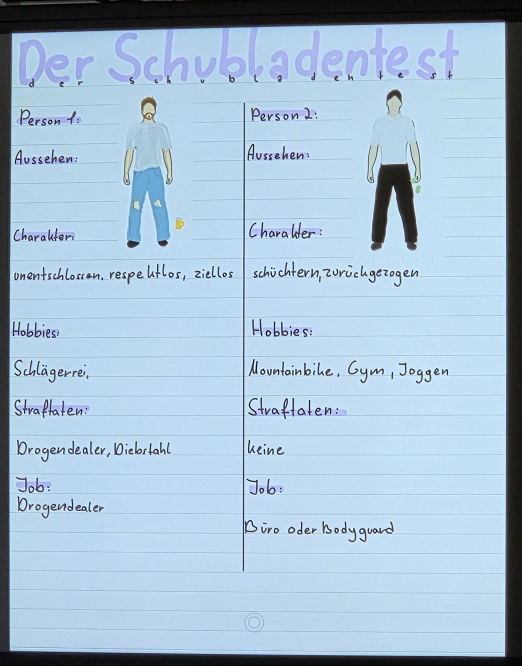 Der Schubladentest
der schubladentest
Person 1:
Aussehen:
Charakter:
unentschlossen, respektlos, ziellos
Hobbies:
Schlägerrei,
Straftaten:
Drogendealer, Diebstahl
Job:
Drogendealer
Person 2:
Aussehen:
Charakter:
schüchtern, zurückgezogen
Hobbies:
Mountainbike, Gym, Joggen
Straftaten:
keine
Job:
Büro oder Bodyguard